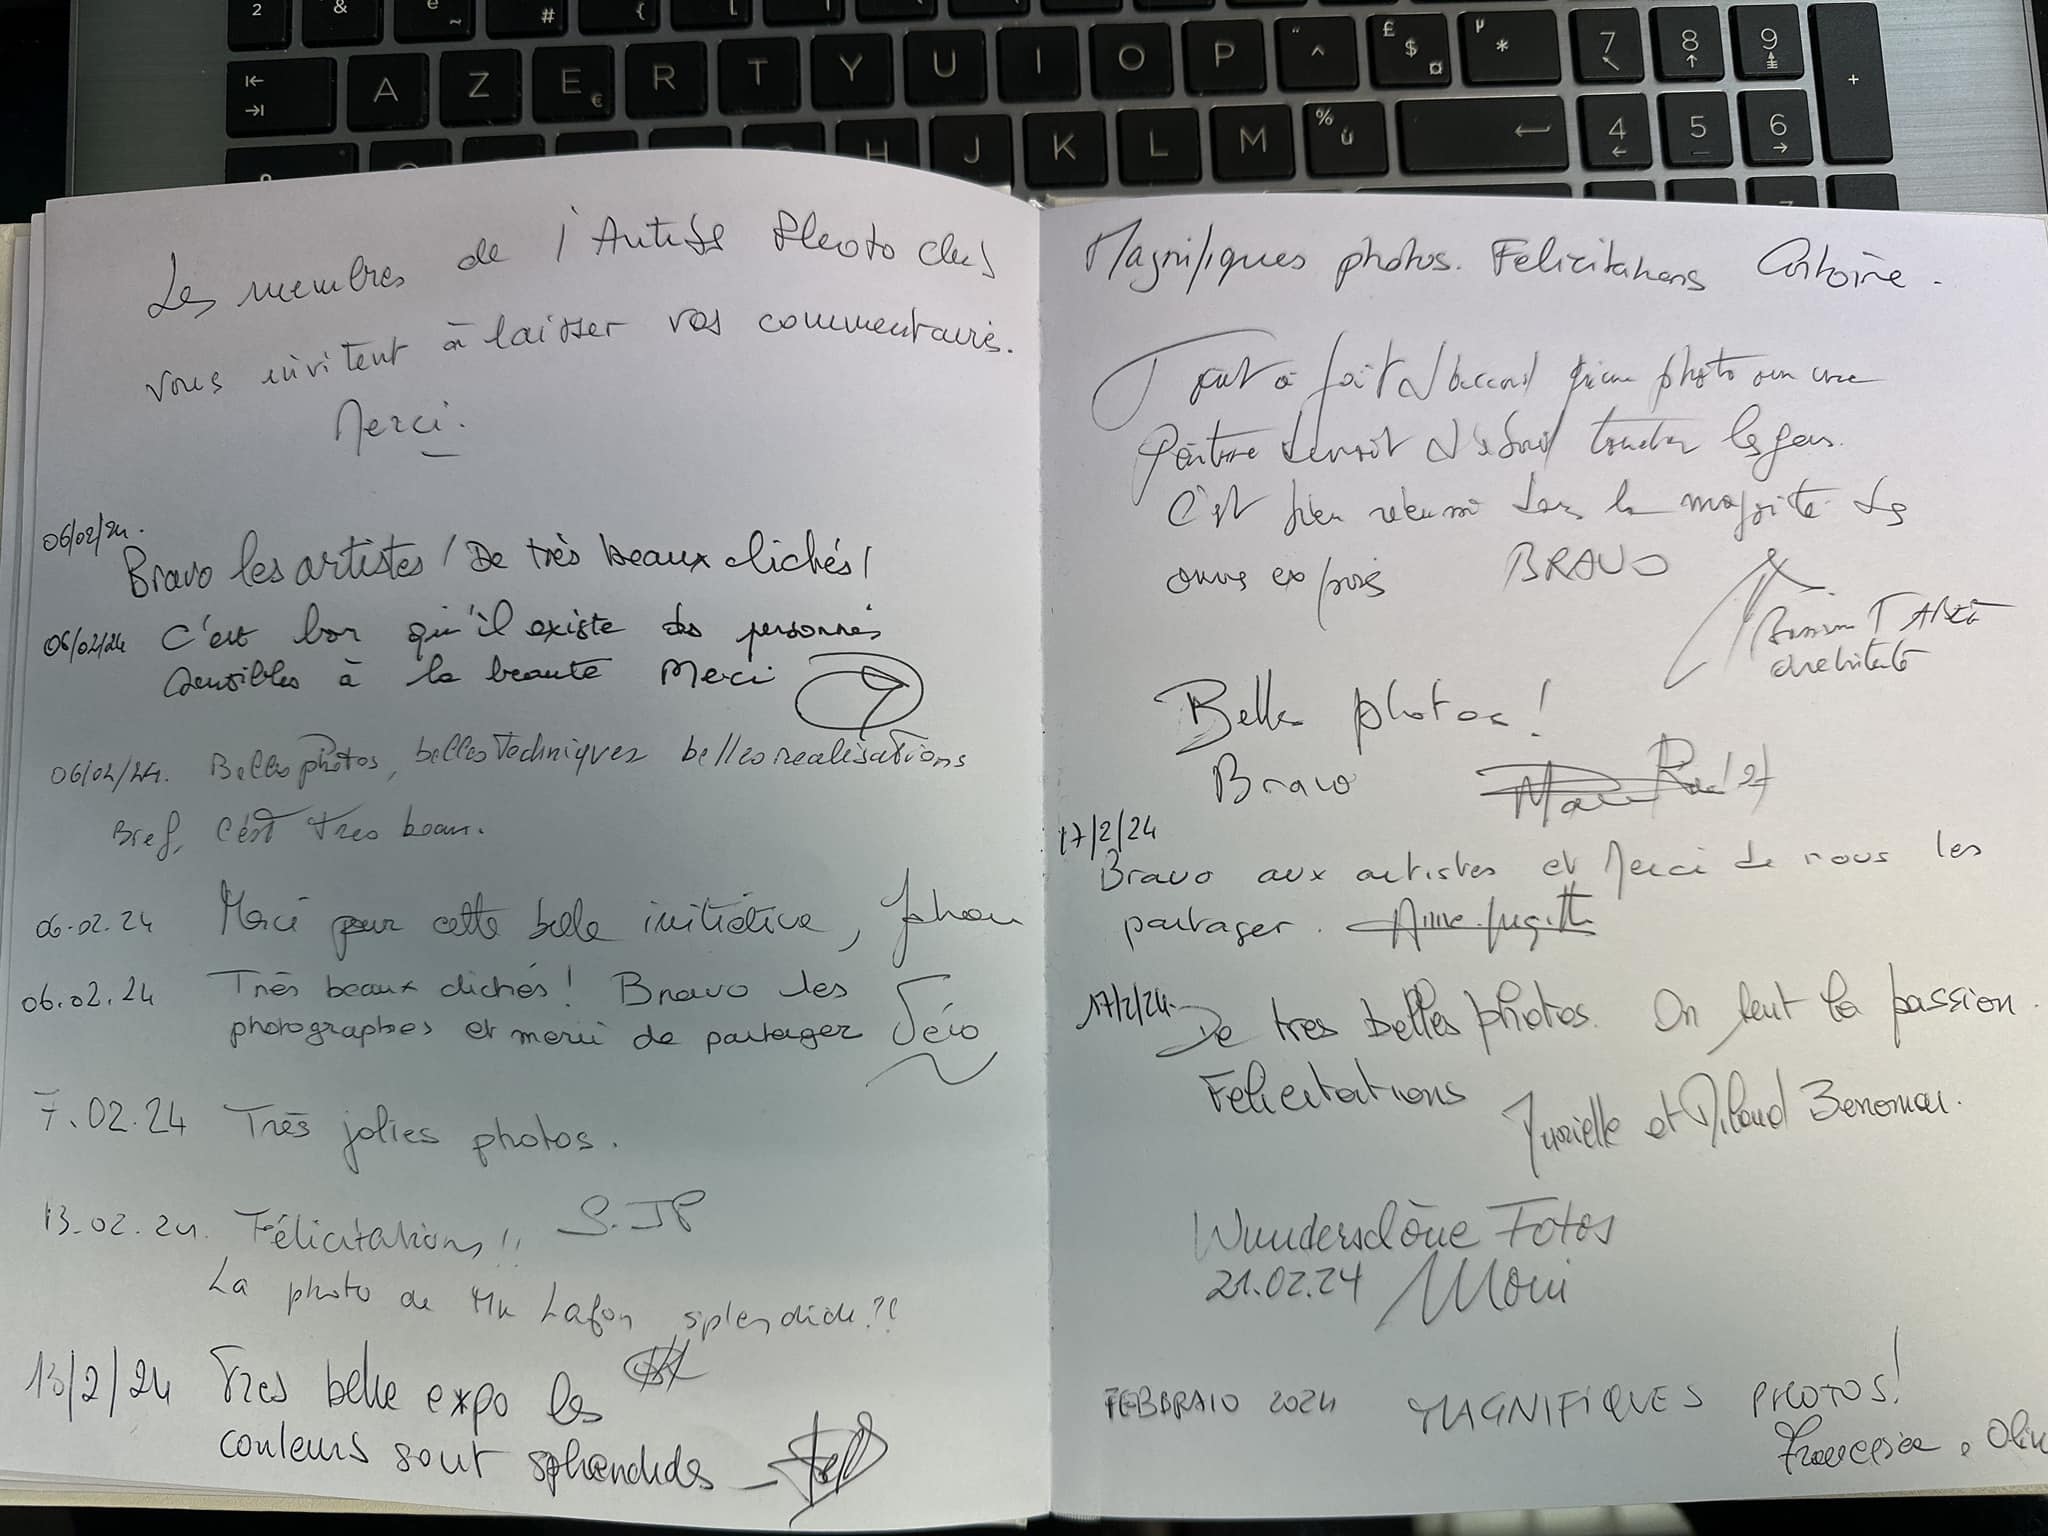 2 & é ~ # { [
A Z E € R T Y U I O P ¨ ^ £ $ ¤ µ * 7 8 9 +
H J K L M % ù 4 5 6
Les membres de l'Photo Club
vous invitent à laisser vos commentaires.
Merci.
06/02/24.
Bravo les artistes! De très beaux clichés!
06/02/24 C'est bon qu'il existe des personnes
sensibles à la beauté Merci
06/02/24. Belles photos, belles techniques belles realisations
Bref, C'est Tres beau.
06.02.24 Merci pour cette belle initiative,
06.02.24 Très beaux clichés! Bravo les
photographes et merci de partager
7.02.24 Très jolies photos.
13.02.24. Félicitations!! S.JP
La photo de Mr Lafon splendide!!
13/2/24 Tres belle expo les
couleurs sont splendides
Magnifiques photos. Felicitations Antoine.
Tout à fait d'accord qu'une photo ou une
Peinture devrait d'abord toucher les gens.
C'est bien réussi dans la majorité des
exposés BRAVO
Belles photos!
Bravo
17/2/24
Bravo aux artistes et Merci de nous les
partager.
17/2/24. De tres belles photos. On sent la passion.
Felicitations
Murielle et Miloud Benomar.
Wunderschöne Fotos
21.02.24 Moni
FEBBRAIO 2024 MAGNIFIQUES PHOTOS!
Francesca